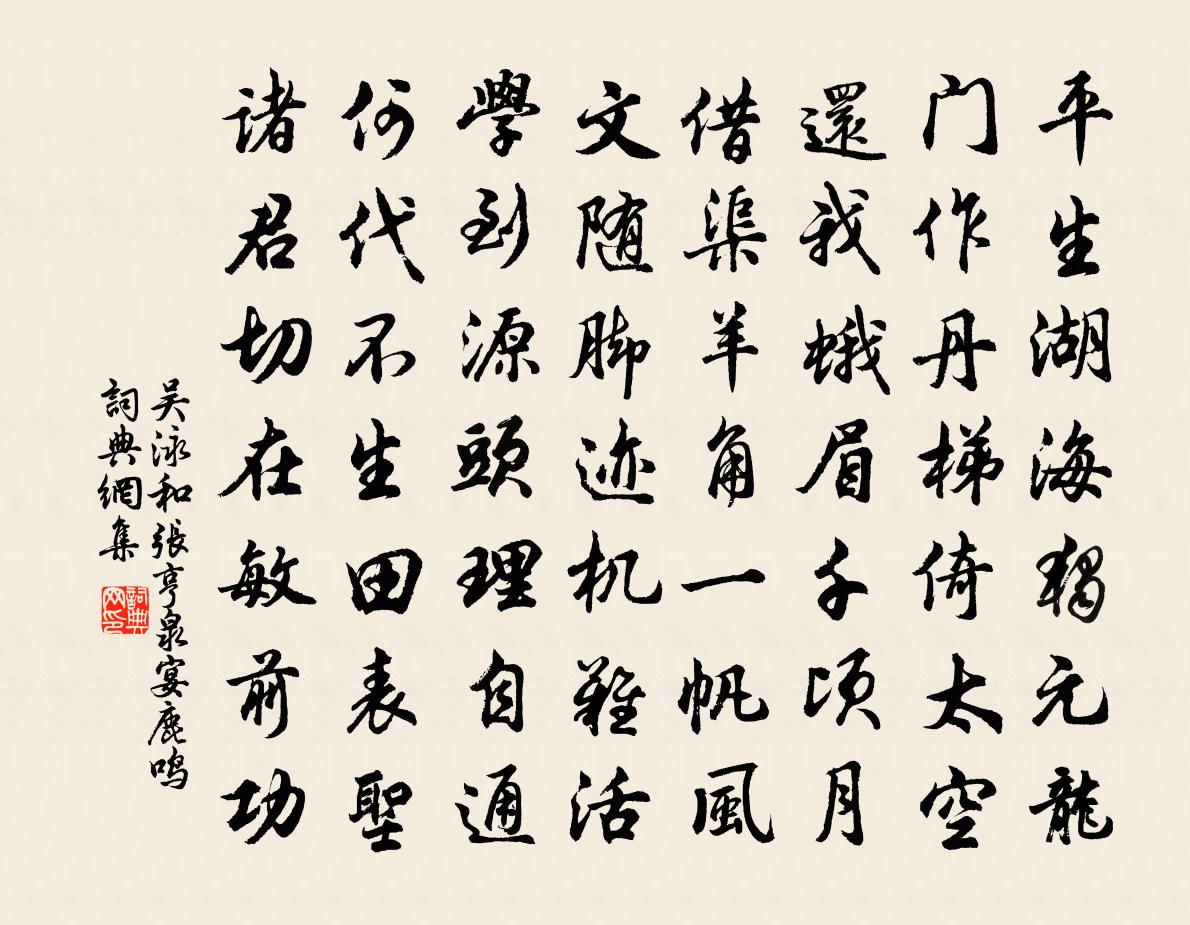 平生湖海狎元龍
门作丹梯倚太空
還我蛾眉千頃月
借渠羊角一帆風
文随脚迹机難活
學到源頭理自通
何代不生田表聖
诸君切在敏前功
吴泳和張亨泉宴鹿鸣
詞典網集
詞典网印